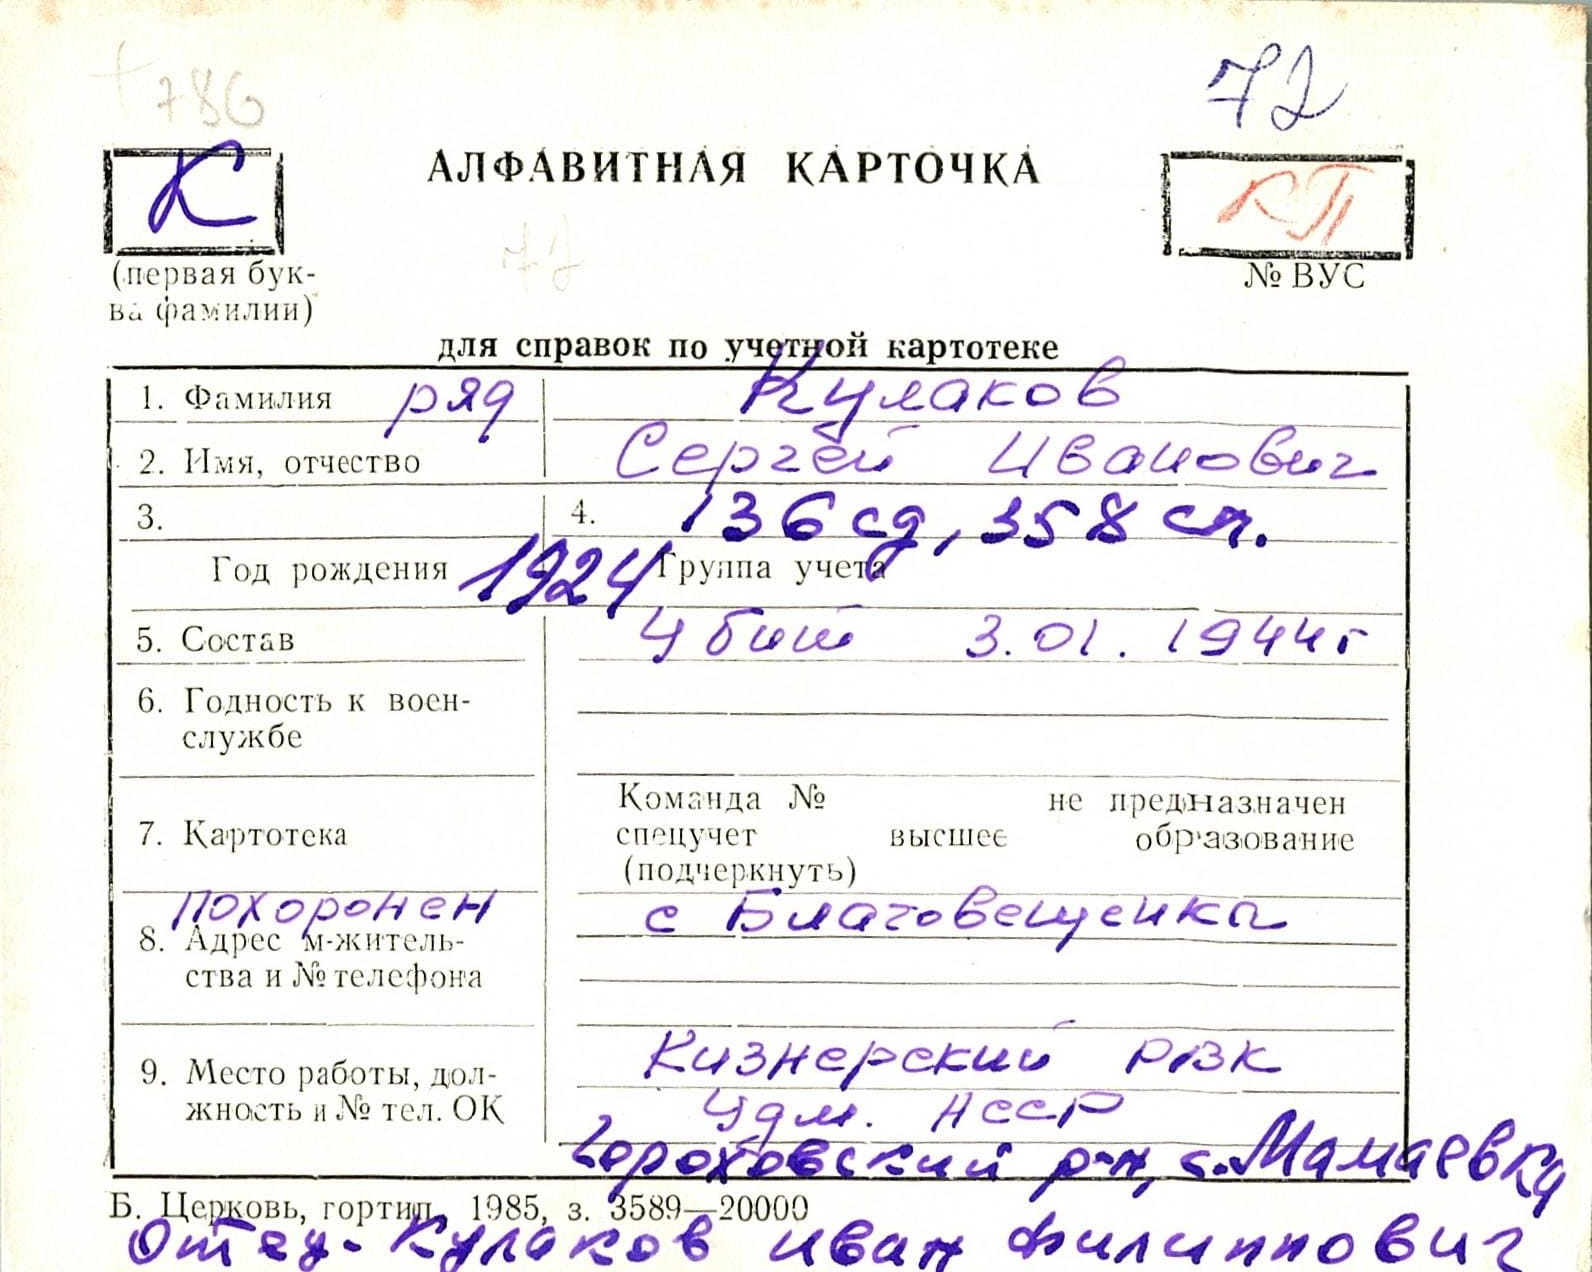 786
72
К
АЛФАВИТНАЯ КАРТОЧКА
КП
72
(первая бук-
ва фамилии)
№ ВУС
для справок по учетной картотеке
1. Фамилия ряд Кулаков
2. Имя, отчество Сергей Иванович
3. 4. 136 сд, 358 сп.
Год рождения 1924 Группа учета
5. Состав Убит 3.01.1944г
6. Годность к воен-
службе
Команда № не предназначен
7. Картотека спецучет высшее образование
(подчеркнуть)
похоронен с Благовещенка
8. Адрес м-житель-
ства и № телефона
Кизнерский РВК
9. Место работы, дол-
жность и № тел. ОК Удм. АССР
Гороховский р-н, с. Мамаевка
Б. Церковь, гортип. 1985, з. 3589—20000
Отец - Кулаков Иван Филиппович